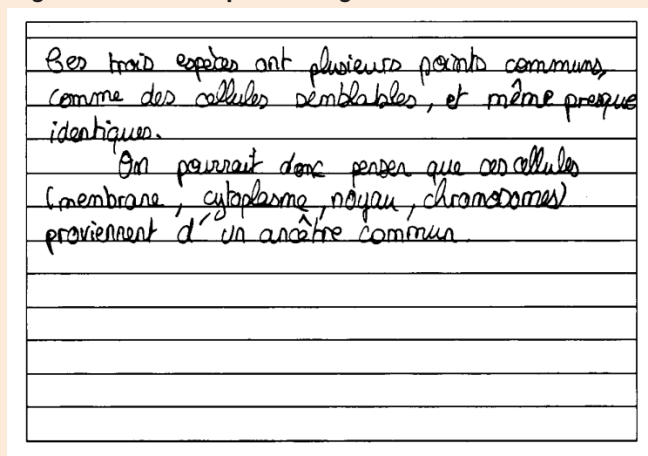 Ces trois espèces ont plusieurs points communs,
comme des cellules semblables, et même presque
identiques.
On pourrait donc penser que ces cellules
(membrane, cytoplasme, noyau, chromosomes)
proviennent d'un ancêtre commun.